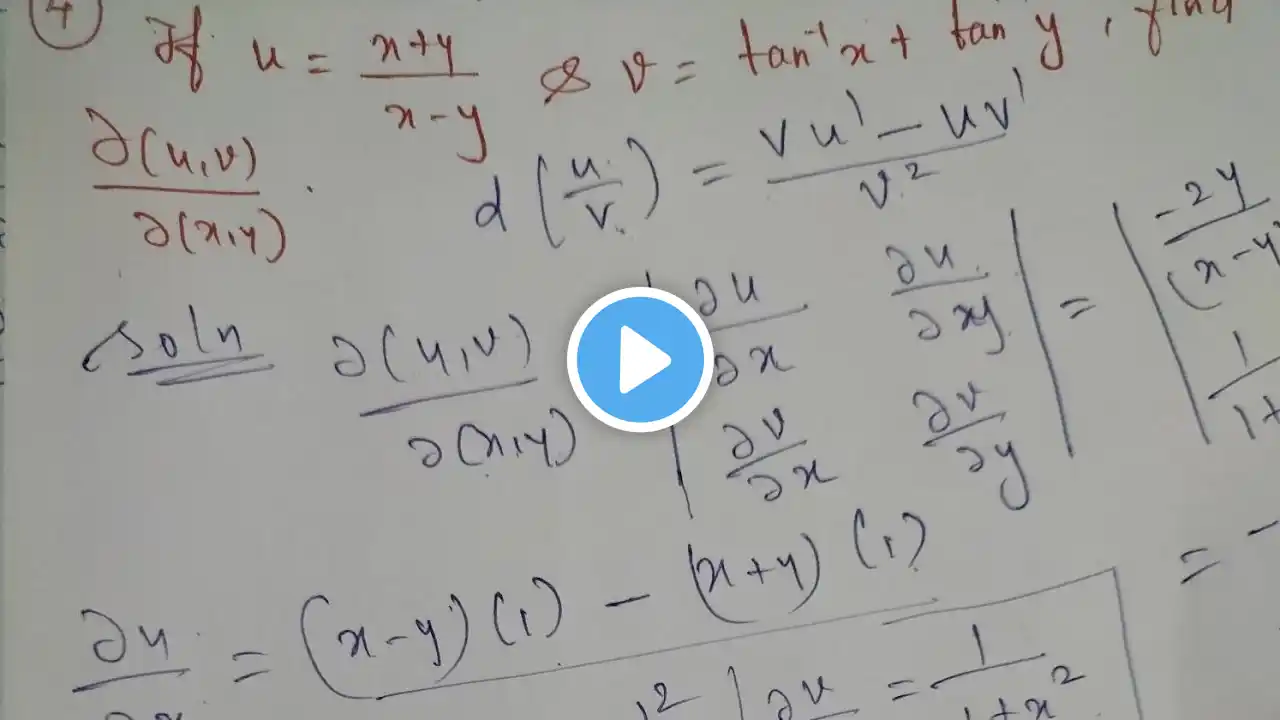 4 If u = (x+y)/(x-y) & v = tan⁻¹x + tan y, find
∂(u,v)/∂(x,y) .
d(u/v) = (vu' - uv')/v²
Soln ∂(u,v)/∂(x,y) | ∂u/∂x ∂u/∂xy | = | -2y/(x-y
| ∂v/∂x ∂v/∂y | | 1/1+
∂u = (x-y)(1) - (x+y)(1) = -
2 | ∂v = 1/1+x²